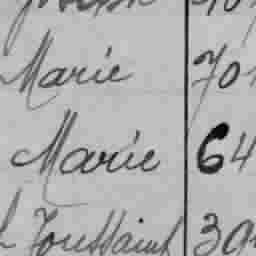 Marie 70
Marie 64
Toussaint 39